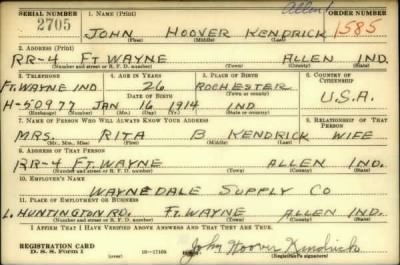 SERIAL NUMBER 1. NAME (Print) Allen ORDER NUMBER
2705 JOHN HOOVER KENDRICK 1585
(First) (Middle) (Last)
2. ADDRESS (Print)
RR-4 FT. WAYNE ALLEN IND.
(Number and street or R. F. D. number) (Town) (County) (State)
3. TELEPHONE 4. AGE IN YEARS 5. PLACE OF BIRTH 6. COUNTRY OF CITIZENSHIP
FT. WAYNE IND 26 ROCHESTER
DATE OF BIRTH (Town or county)
H-50977 JAN 16 1914 IND U.S.A.
(Exchange) (Number) (Mo.) (Day) (Yr.) (State or country)
7. NAME OF PERSON WHO WILL ALWAYS KNOW YOUR ADDRESS 8. RELATIONSHIP OF THAT PERSON
MRS. RITA B KENDRICK WIFE
(Mr., Mrs., Miss) (First) (Middle) (Last)
9. ADDRESS OF THAT PERSON
RR-4 FT. WAYNE ALLEN IND.
(Number and street or R. F. D. number) (Town) (County) (State)
10. EMPLOYER'S NAME
WAYNEDALE SUPPLY CO
11. PLACE OF EMPLOYMENT OR BUSINESS
L. HUNTINGTON RD. FT. WAYNE ALLEN IND
(Number and street or R. F. D. number) (Town) (County) (State)
I AFFIRM THAT I HAVE VERIFIED ABOVE ANSWERS AND THAT THEY ARE TRUE.
REGISTRATION CARD John Hoover Kendrick
D. S. S. Form 1 (Registrant's signature)